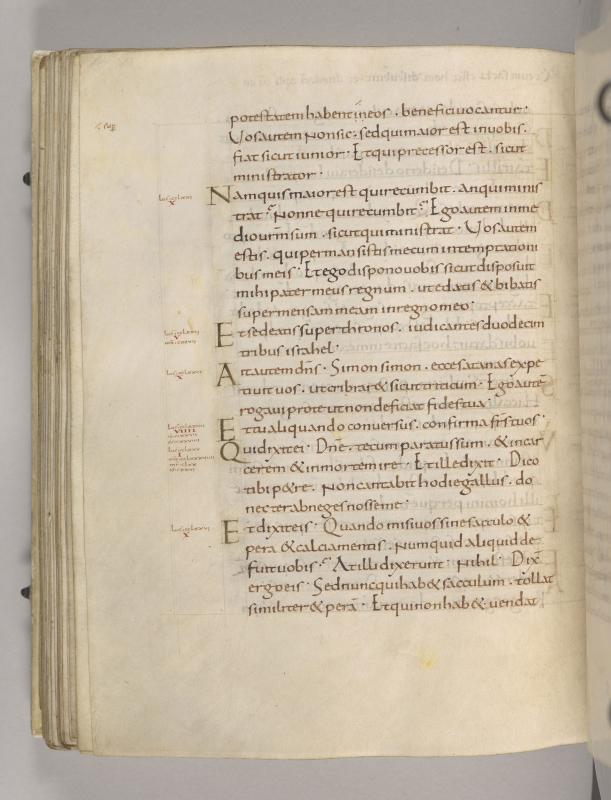 potestatem habent in eos · benefici vocantur ·
Vos autem non sic · sed qui maior est in vobis ·
fiat sicut iunior · Et qui precessor est · sicut
ministrator ·
Nam quis maior est qui recumbit · an qui minis
trat · Nonne qui recumbit · Ego autem in me
dio urm̄ sum · sicut qui ministrat · Vos autem
estis · qui permansistis mecum in temptationi
bus meis · Et ego dispono vobis sicut disposuit
mihi pater meus regnum · ut edatis & bibatis
super mensam meam in regno meo ·
Et sedeatis super thronos · iudicantes duodecim
tribus israhel ·
Ait autem dn̄s · Simon simon · ecce satanas expe
tivit vos · ut cribrar& sicut triticum · Ego autē
rogavi pro te ut non deficiat fides tua ·
Et tu aliquando conversus · confirma fr̄s tuos ·
Qui dixit ei · Dn̄e · tecum paratus sum · & in car
cerem & in mortem ire · Et ille dixit · Dico
tibi p&re · Non cantabit hodie gallus · do
nec ter abneges nosse me ·
Et dixit eis · Quando misi vos sine sacculo &
pera & calciamentis · numquid aliquid de
fuit vobis · At illi dixerunt · Nihil · Dix̄
ergo eis · Sed nunc qui hab& sacculum · tollat
similiter & perā · Et qui non hab& · vendat